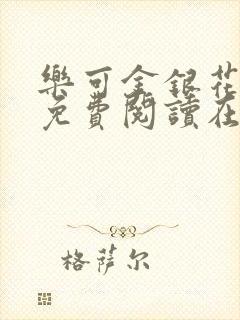 樂可金銀花
免費閱讀在
格萨尔